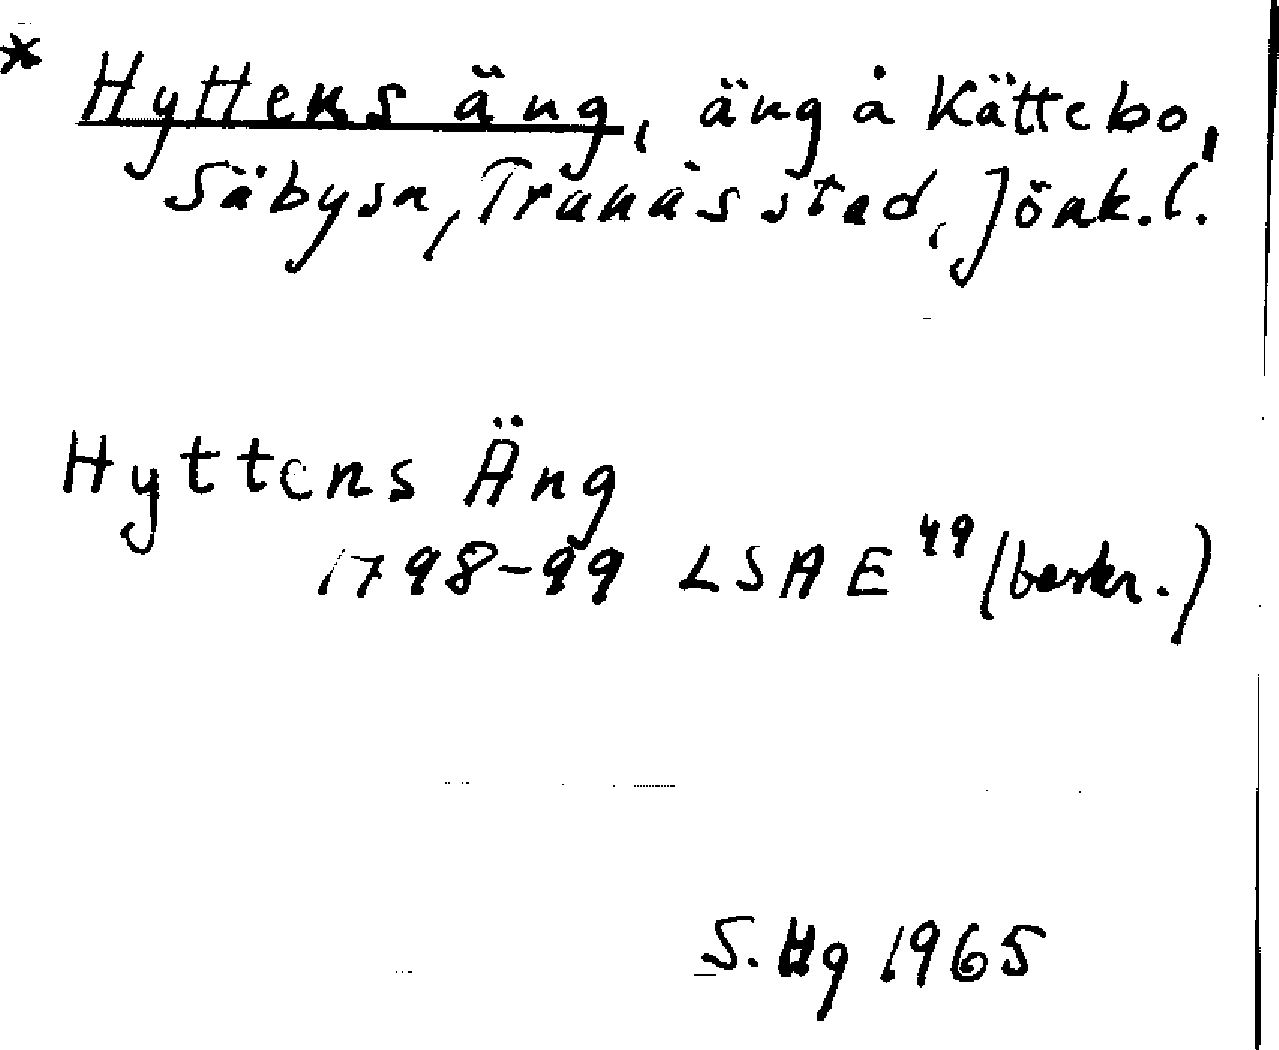 * Hyttens äng, äng å Kättebo,
Säbysn, Tranås stad, Jönk.l.
Hyttens Äng
1798-99 LSA E 49 (beskr.)
S. Hg 1965